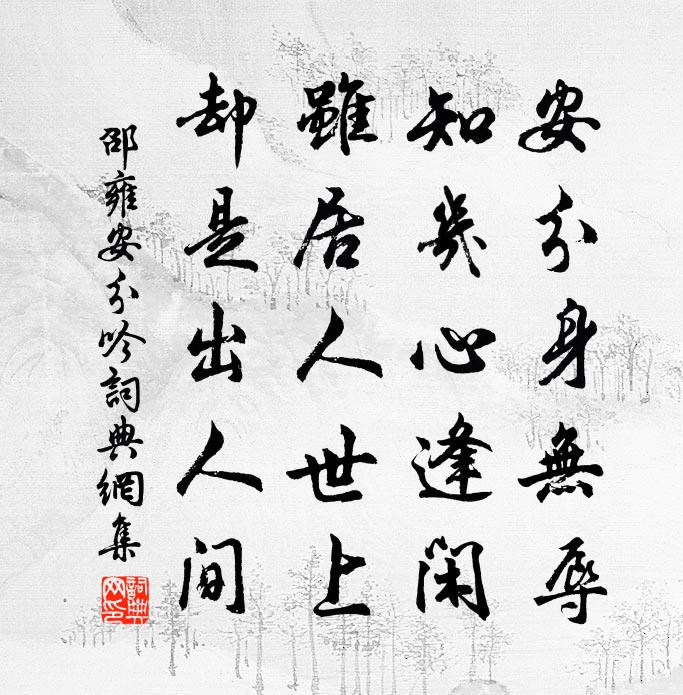 安分身無辱
知幾心逢閑
雖居人世上
却是出人間
邵雍安分吟詞典網集
詞典網印